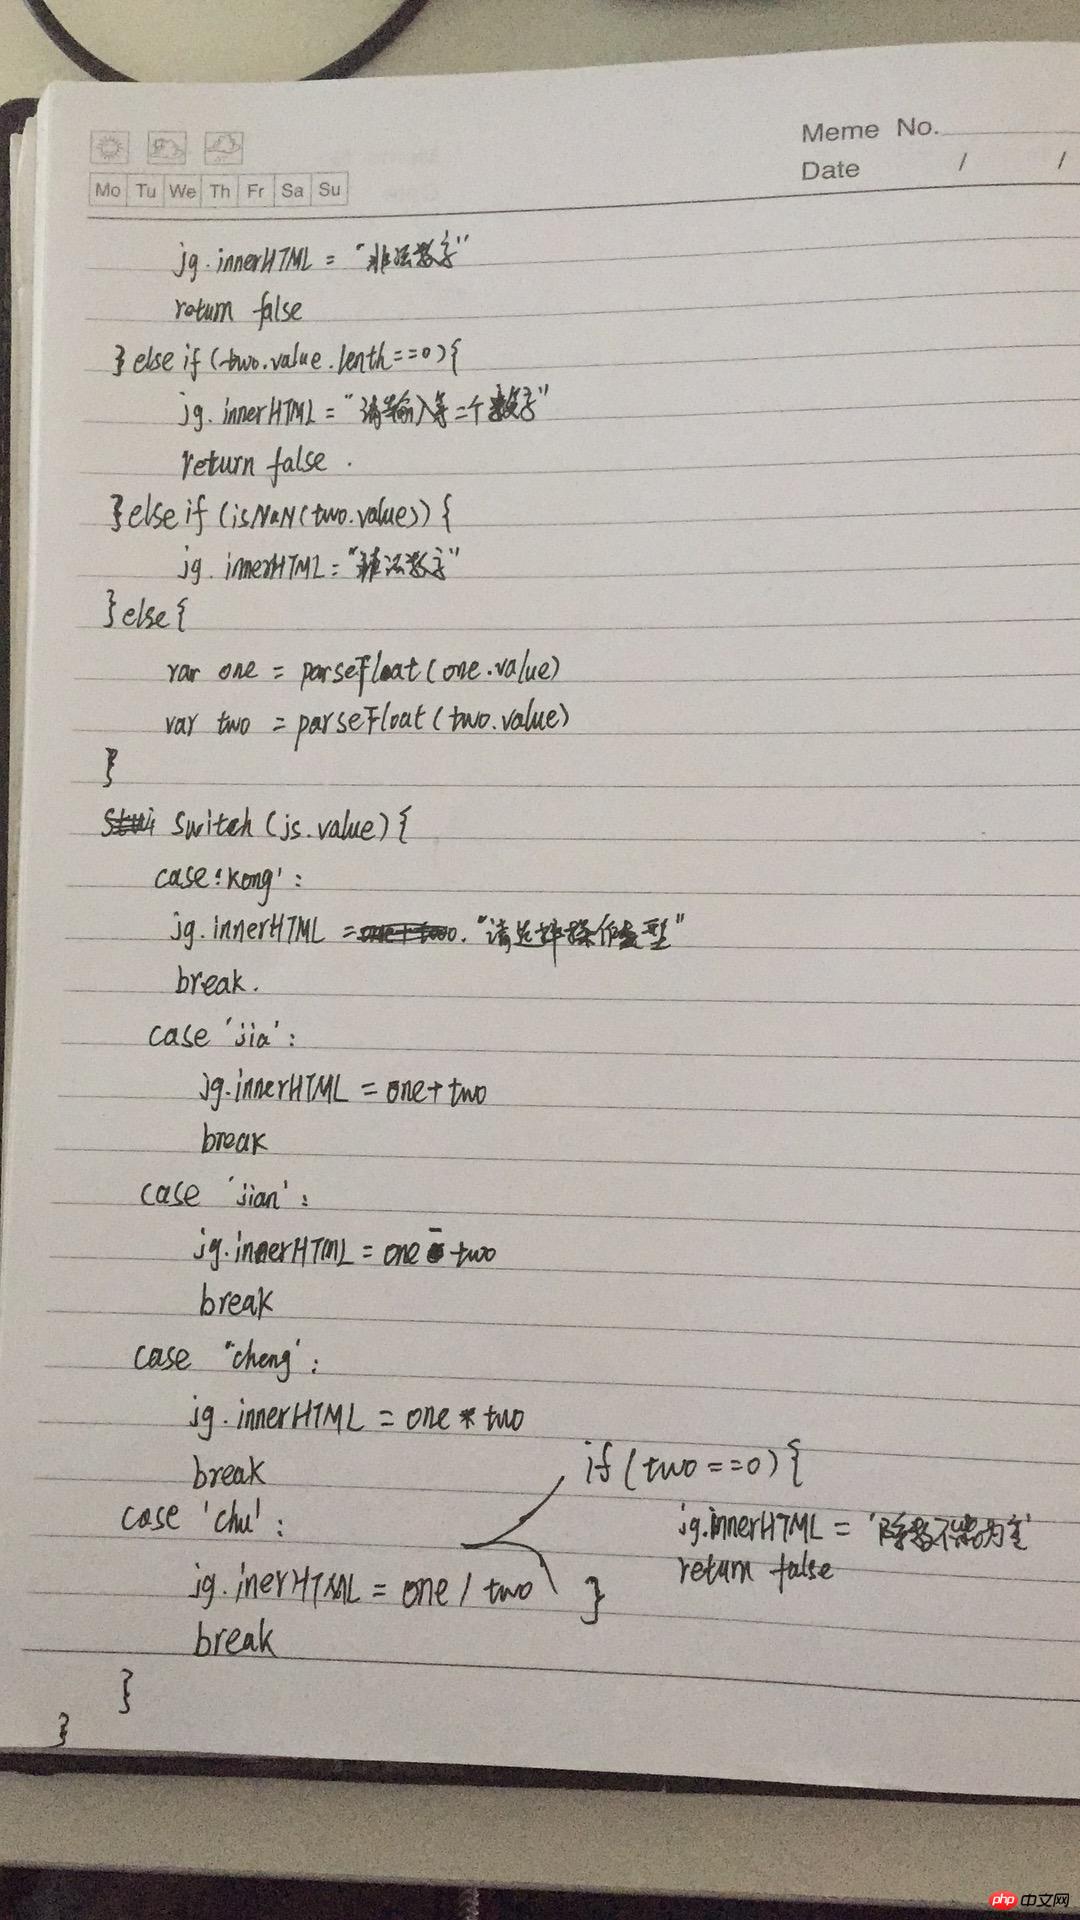 Meme No.
Date / /
Mo Tu We Th Fr Sa Su
jg.innerHTML = "非法数字"
return false
}else if(two.value.lenth==0){
jg.innerHTML="请输入第二个数字"
return false.
}else if(isNaN(two.value)){
jg.innerHTML="非法数字"
}else{
var one = parseFloat(one.value)
var two = parseFloat(two.value)
}
Switch(js.value){
case'kong':
jg.innerHTML = "请选择操作类型"
break.
case 'jia':
jg.innerHTML = one+two
break
case 'jian':
jg.innerHTML = one - two
break
case "cheng':
jg.innerHTML = one * two
break
case 'chu':
if(two==0){
jg.innerHTML = '除数不能为零'
return false
}
jg.inerHTML = one / two
break
}
}
php 中文网